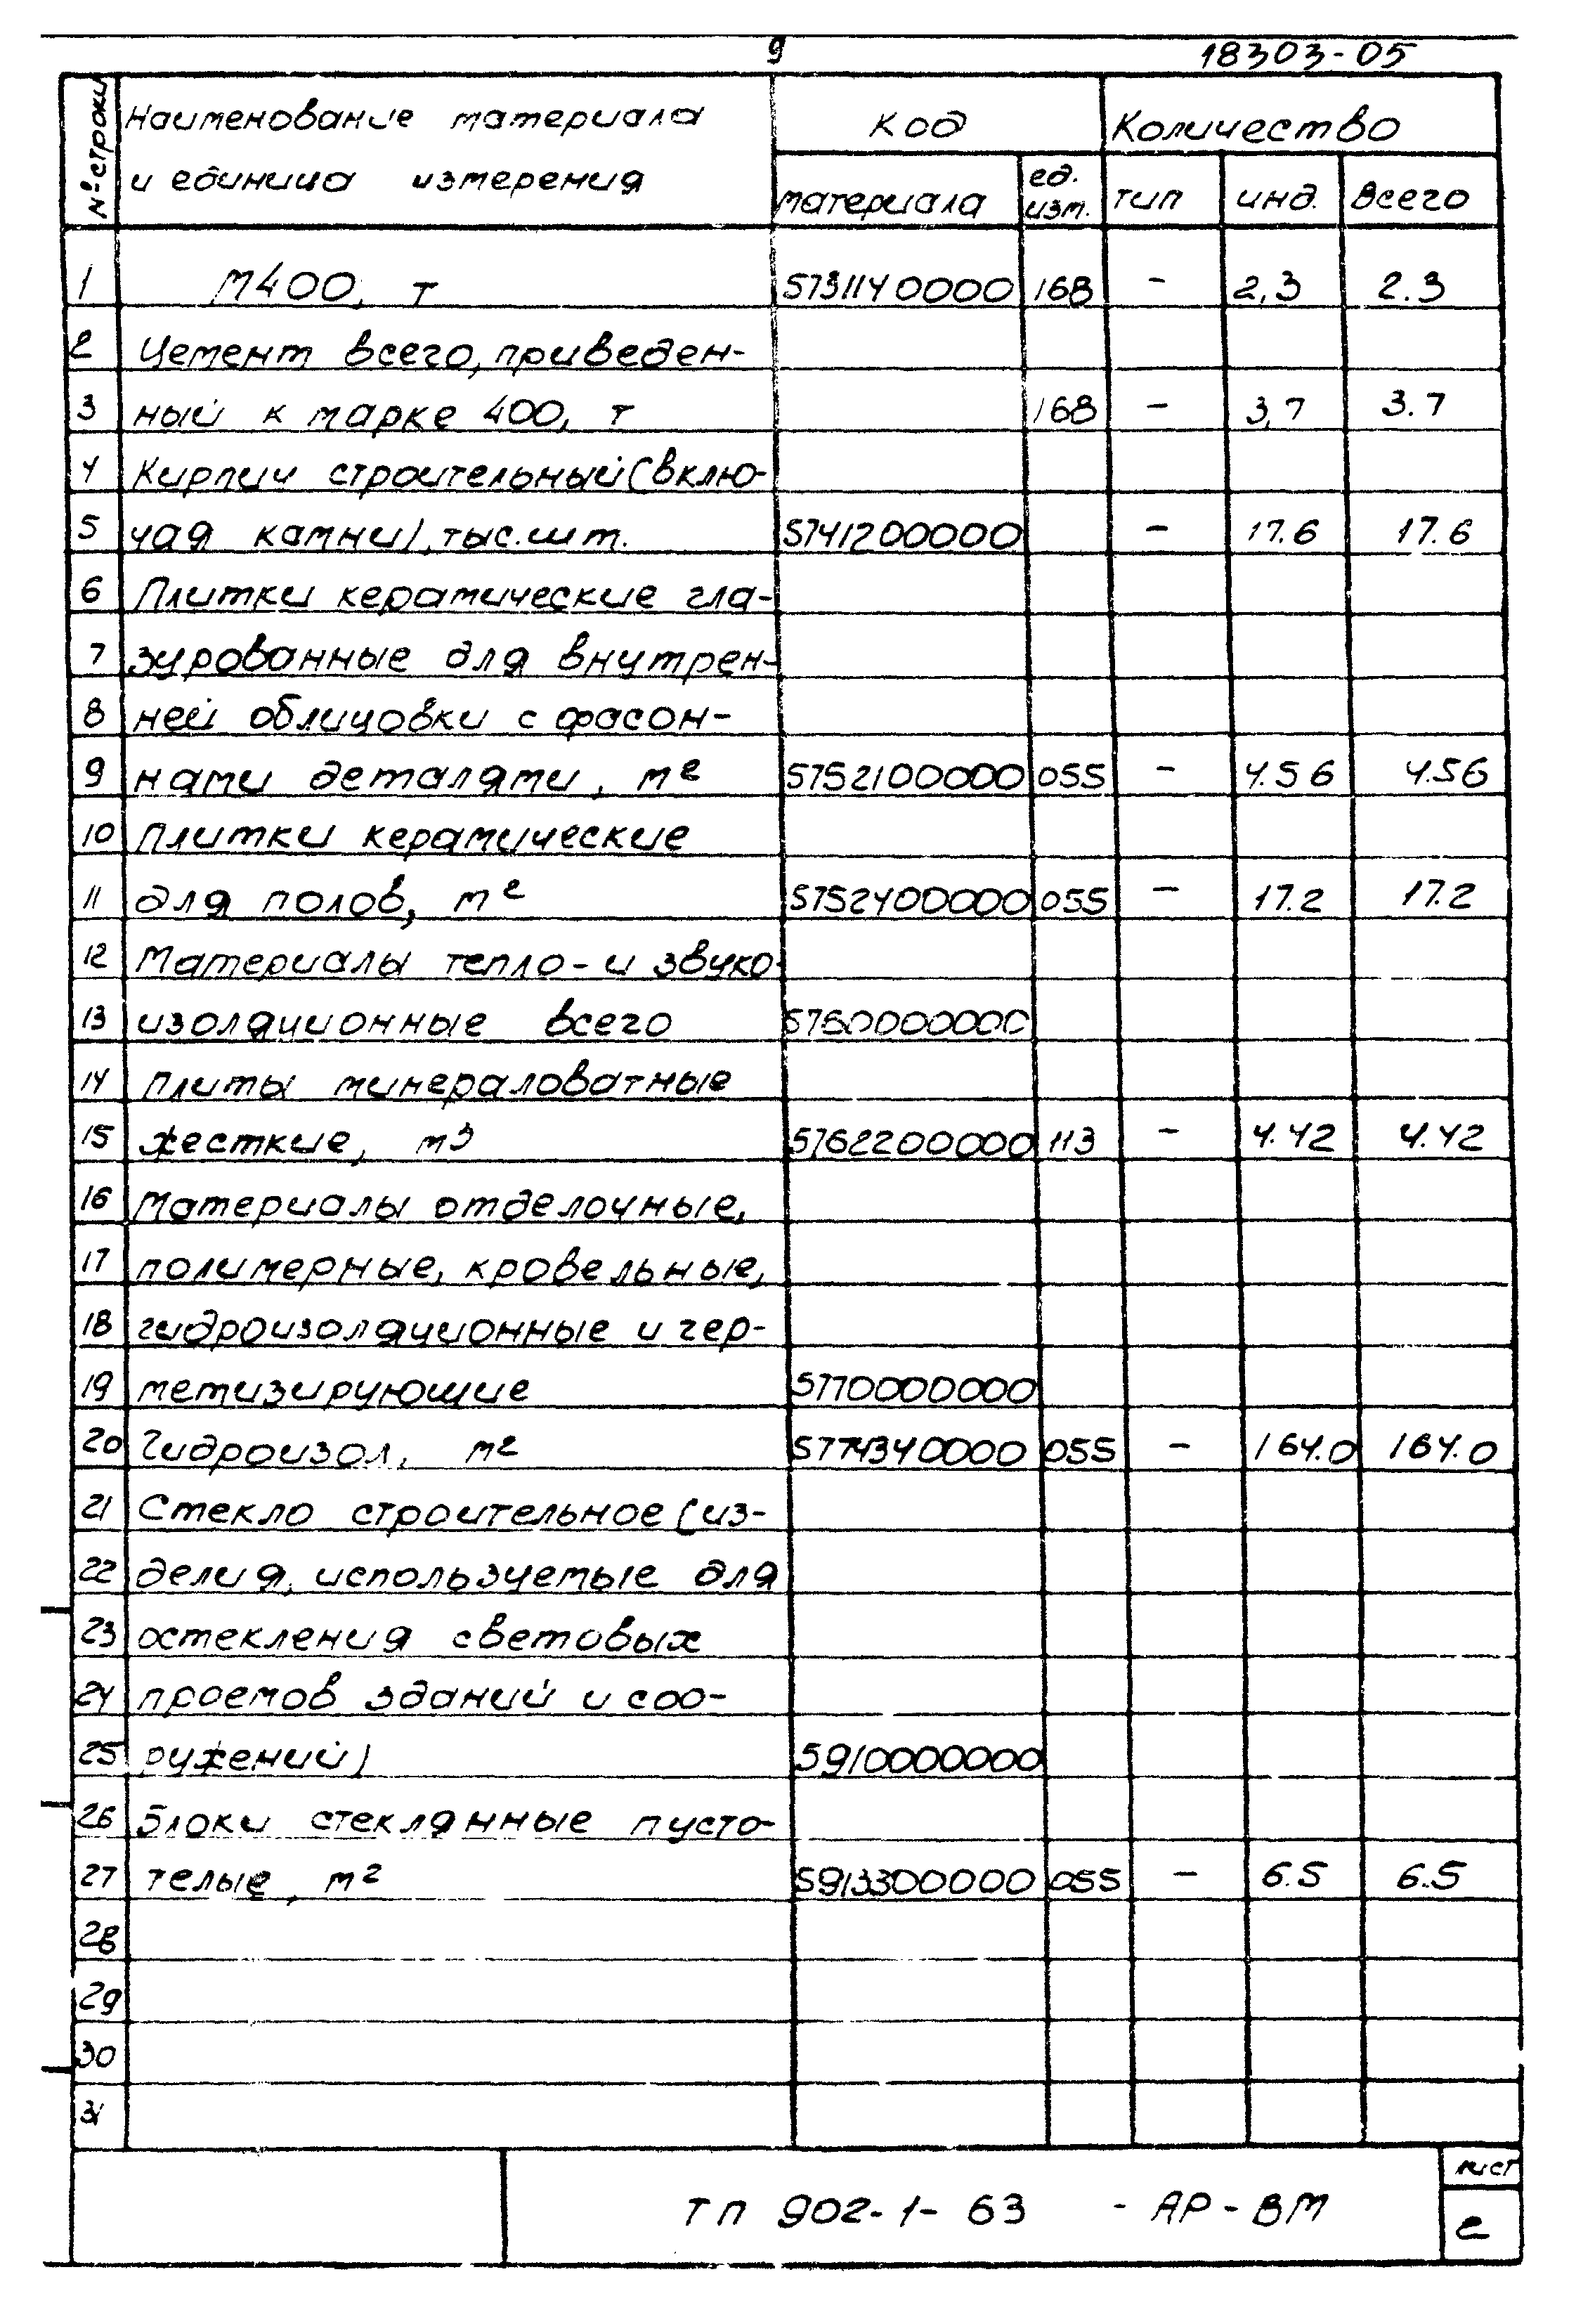 9
18303-05
№ строки Наименование материала и единица измерения Код Количество
материала ед. изм. тип инд. Всего
1 М400, т 5731140000 168 - 2,3 2.3
2 Цемент всего, приведен-
3 ный к марке 400, т 168 - 3,7 3.7
4 Кирпич строительный (вклю-
5 чая камни), тыс.шт. 5741200000 - 17.6 17.6
6 Плитки керамические гла-
7 зурованные для внутрен-
8 ней облицовки с фасон-
9 нами деталями, м2 5752100000 055 - 4.56 4.56
10 Плитки керамические
11 для полов, м2 5752400000 055 - 17.2 17.2
12 Материалы тепло- и звуко-
13 изоляционные всего 5760000000
14 Плиты минераловатные
15 жесткие, м3 5762200000 113 - 4.42 4.42
16 Материалы отделочные,
17 полимерные, кровельные,
18 гидроизоляционные и гер-
19 метизирующие 5770000000
20 Гидроизол, м2 5774340000 055 - 164.0 164.0
21 Стекло строительное (из-
22 делия, используемые для
23 остекления световых
24 проемов зданий и соо-
25 ружений) 5910000000
26 Блоки стеклянные пусто-
27 телые, м2 5913300000 055 - 6.5 6.5
28
29
30
31
ТП 902-1-63 - АР-ВМ
лист
2